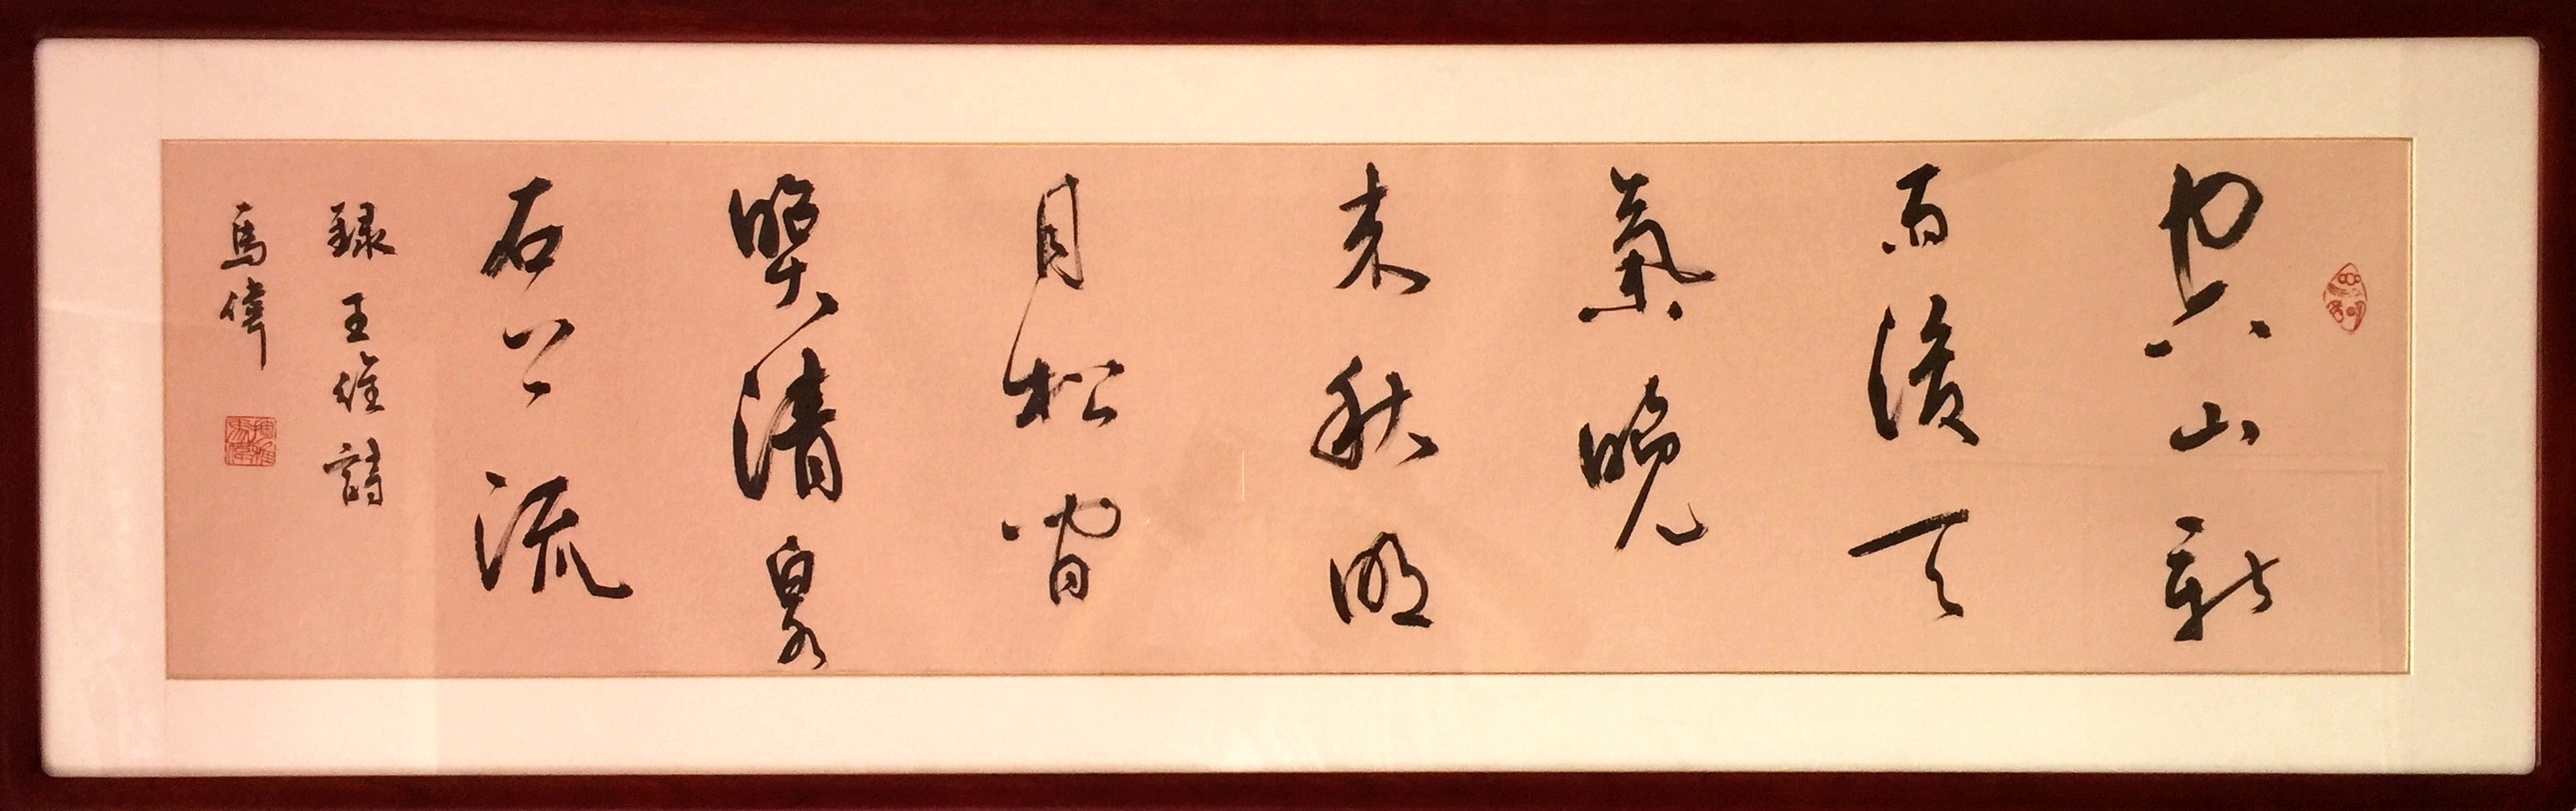 空山新
雨後天
氣晚
来秋明
月松間
照清泉
石上流
録王維詩
馬偉